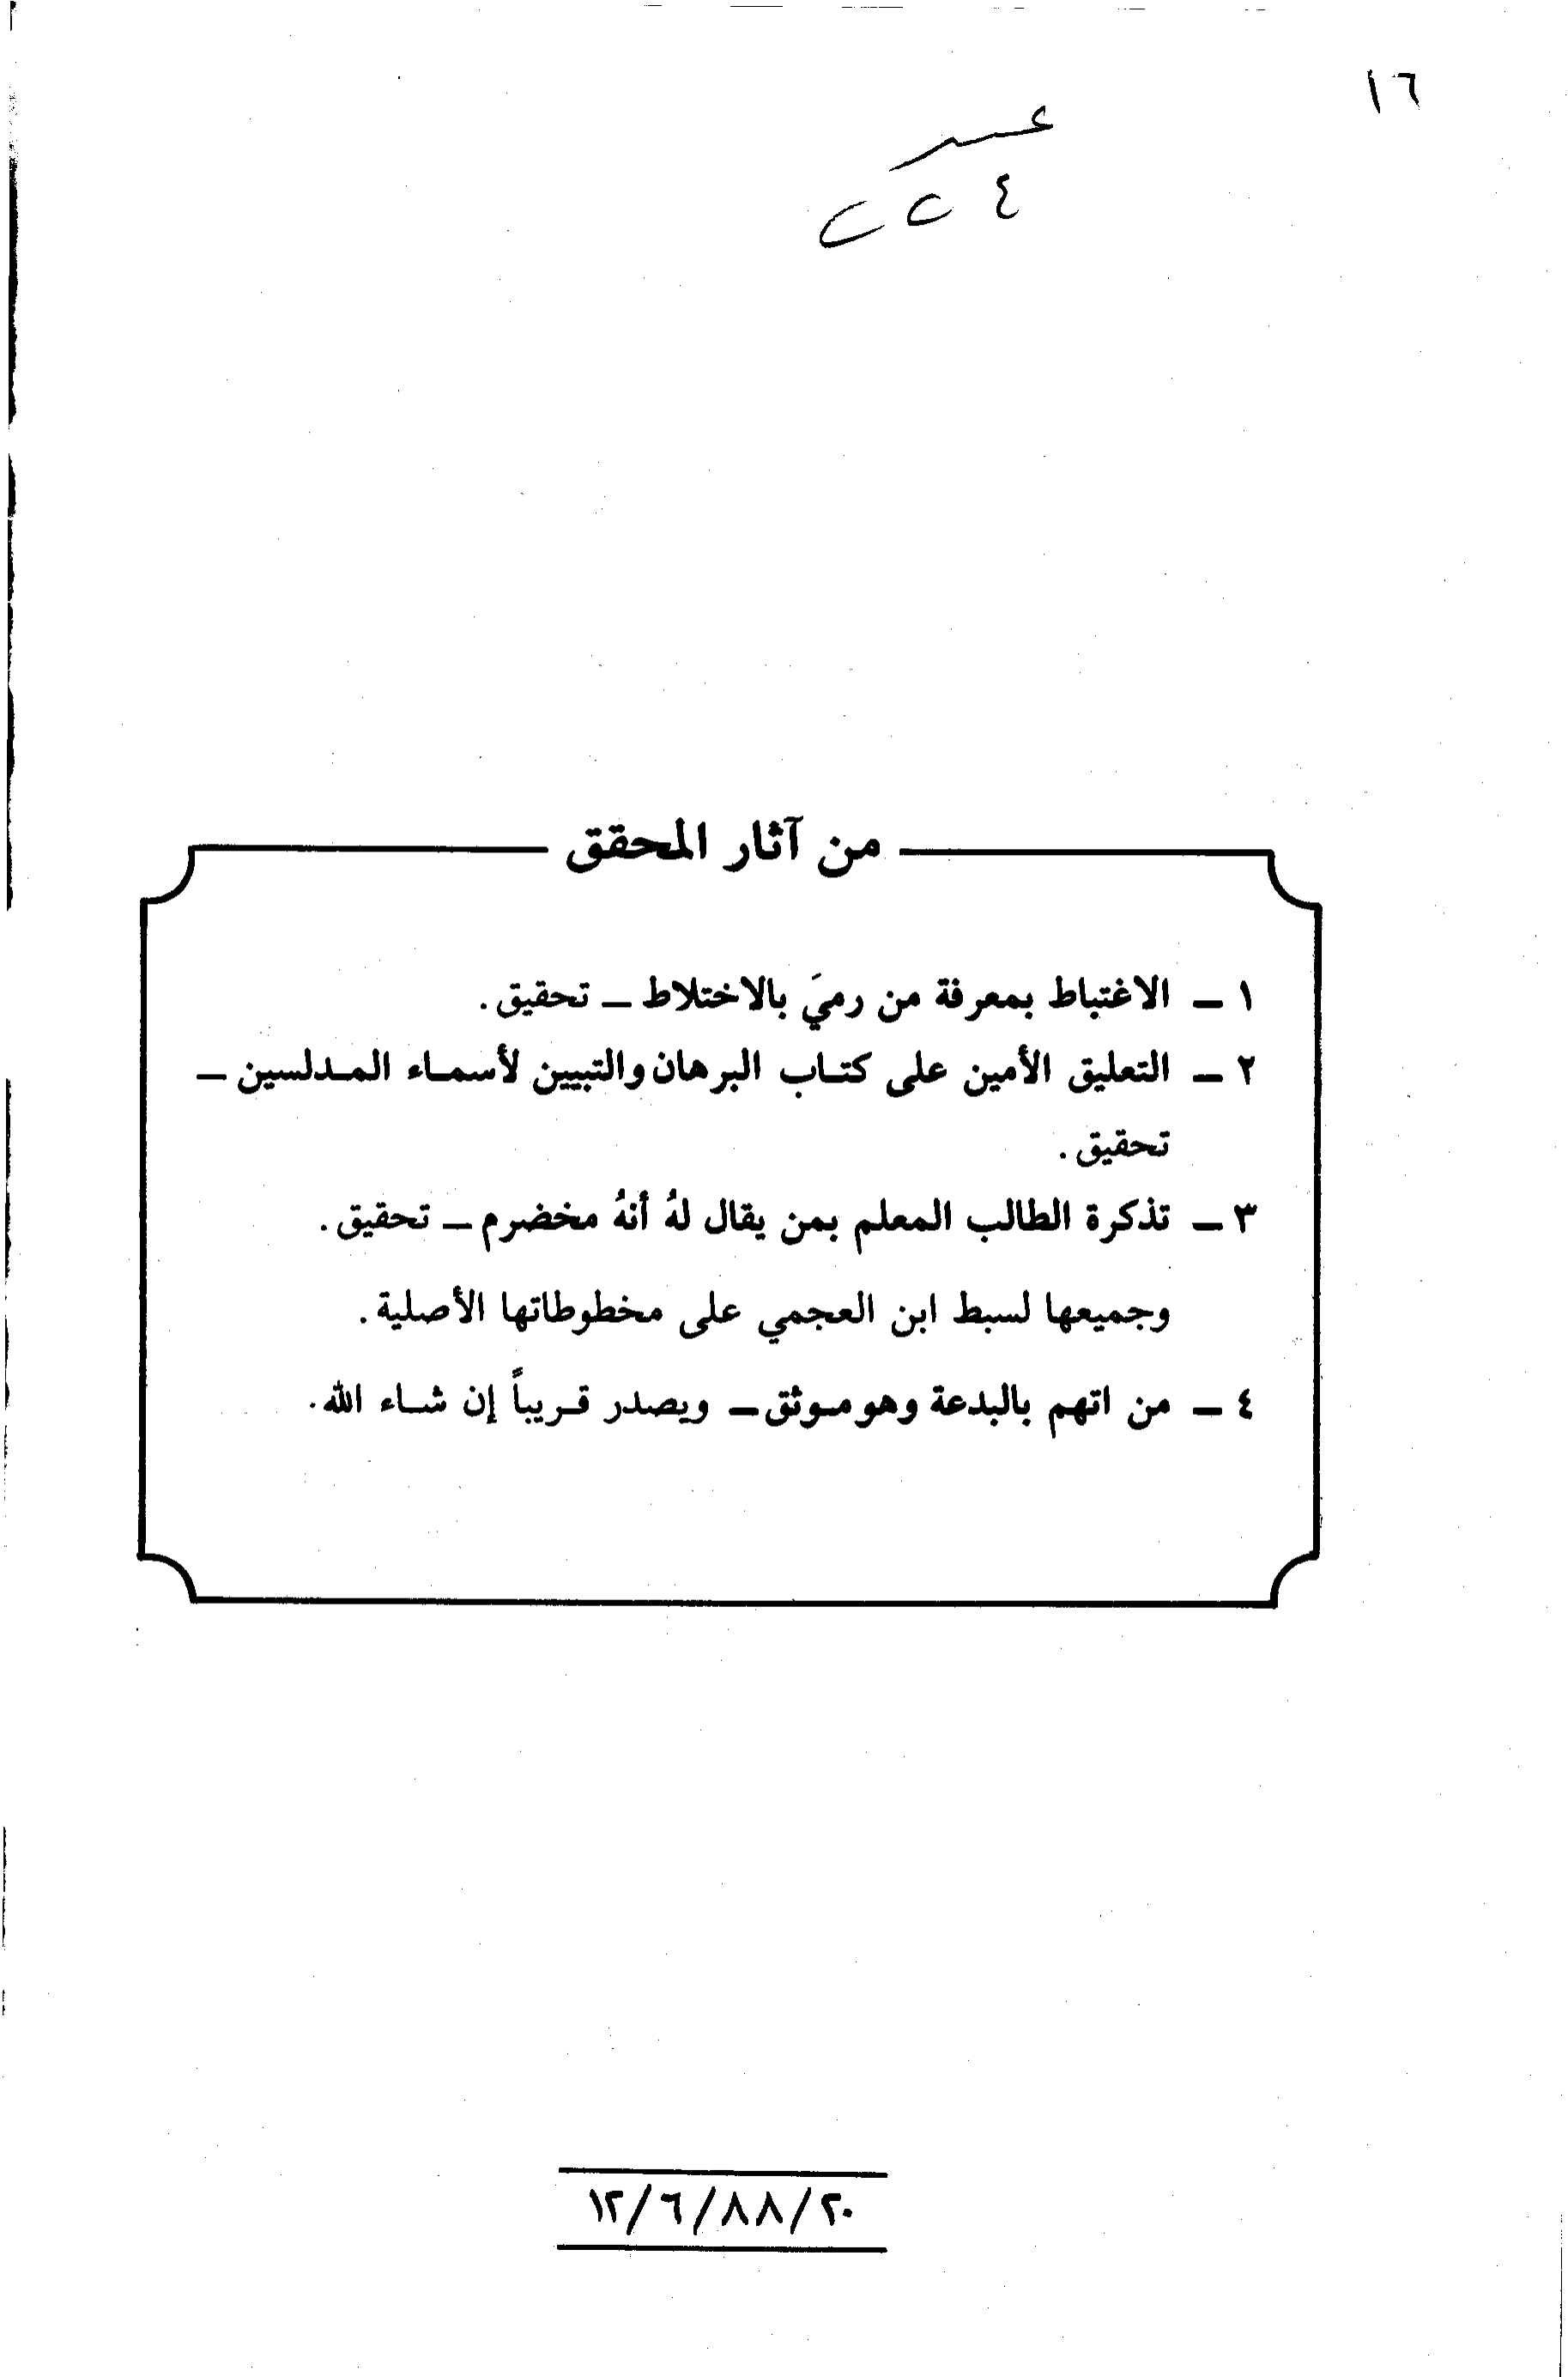 ١٦
من آثار المحقق
١ – الاغتباط بمعرفة من رميَ بالاختلاط – تحقيق.
٢ – التعليق الأمين على كتـاب البرهان والتبيين لأسمـاء المـدلسين –
تحقيق.
٣ – تذكرة الطالب المعلم بمن يقال لهُ أنهُ مخضرم – تحقيق.
وجميعها لسبط ابن العجمي على مخطوطاتها الأصلية.
٤ – من اتهم بالبدعة وهو مـوثق – ويصدر قـريباً إن شـاء الله.
١٢/٦/٨٨/٢٠